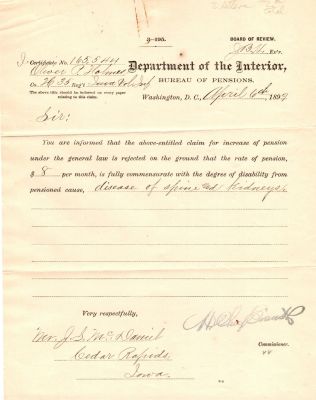 3—195.
BOARD OF REVIEW.
Ex'r.
Certificate No. 163,544
Oliver P. Holmes
Department of the Interior,
BUREAU OF PENSIONS,
The above title should be indorsed on every paper
relating to this claim.
Washington, D. C., April 6th 1897
Sir:
You are informed that the above-entitled claim for increase of pension
under the general law is rejected on the ground that the rate of pension,
$ 8 per month, is fully commensurate with the degree of disability from
pensioned cause, disease of spine and kidneys.
Very respectfully,
Mr. J. S. McDaniel
Commissioner.
Cedar Rapids
Iowa.